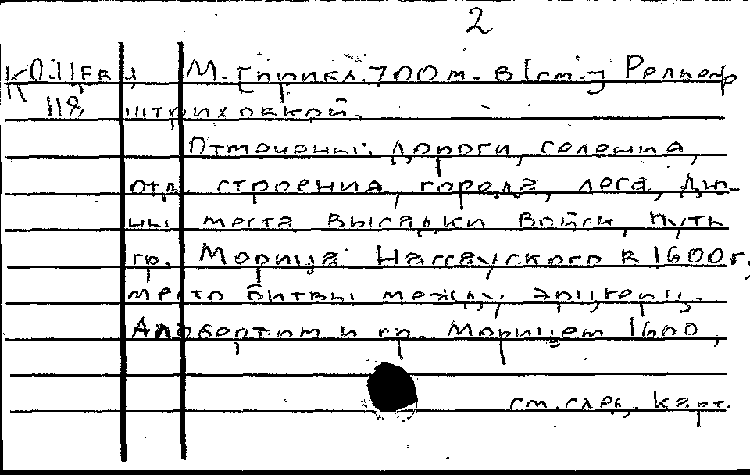 2
М. [прибл. 700 м. в 1 см.] Рельеф
118 штриховкой.
Отмечены: дороги, селения,
отд. строения, города, леса, дю-
ны места высадки войск, путь
гр. Морица Нассауского в 1600 г,
место битвы между эрцгерц.
Альбертом и гр. Морицем 1600,
см. след. карт.